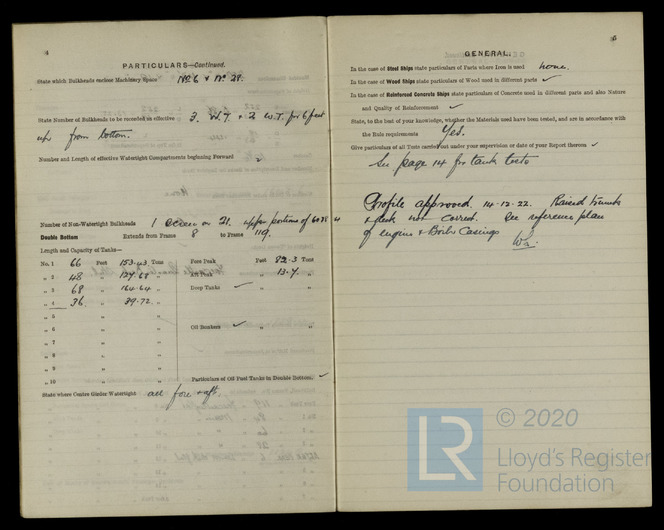 4
PARTICULARS—Continued.
State which Bulkheads enclose Machinery Space No 6 & No 28.
State Number of Bulkheads to be recorded as effective 3. W.T. + 2 W.T. for 6 feet
up from bottom.
Number and Length of effective Watertight Compartments beginning Forward
Number of Non-Watertight Bulkheads 1 Screen on 28. upper portions of
Double Bottom Extends from Frame 8 to Frame 119.
Length and Capacity of Tanks—
No. 1 66 Feet 153.43 Tons Fore Peak Feet 82.3 Tons
„ 2 48 „ „ Aft Peak „ 13.7 „
„ 3 68 „ 164.64 „ Deep Tanks ✓ „ „
„ 4 36 „ 39.72 „
„ 5 „ „
„ 6 „ „ Oil Bunkers ✓ „ „
„ 7 „ „
„ 8 „ „
„ 9 „ „
„ 10 „ „ Particulars of Oil Fuel Tanks in Double Bottom. ✓
State where Centre Girder Watertight all fore & aft.
5
GENERAL.
In the case of Steel Ships state particulars of Parts where Iron is used none.
In the case of Wood Ships state particulars of Wood used in different parts ✓
In the case of Reinforced Concrete Ships state particulars of Concrete used in different parts and also Nature
and Quality of Reinforcement ✓
State, to the best of your knowledge, whether the Materials used have been tested, and are in accordance with
the Rule requirements Yes.
Give particulars of all Tests carried out under your supervision or date of your Report thereon ✓
See page 14 for tank tests
Profile approved 14-12-22. Raised trunks
& deck now correct. See reference plan
of engine & Boiler Casings
© 2020
LR
Lloyd's Register
Foundation